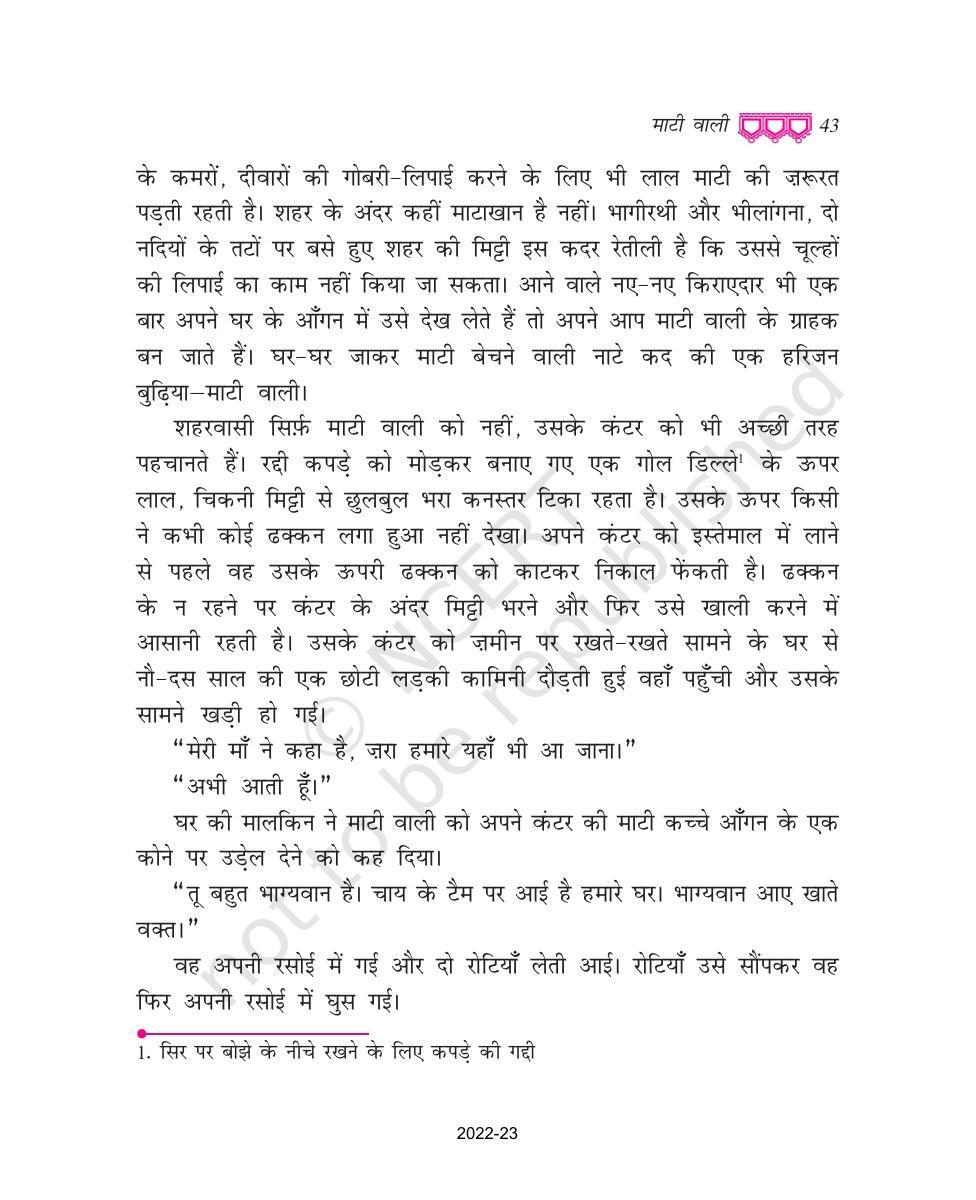 माटी वाली 43
के कमरों, दीवारों की गोबरी-लिपाई करने के लिए भी लाल माटी की ज़रूरत
पड़ती रहती है। शहर के अंदर कहीं माटाखान है नहीं। भागीरथी और भीलांगना, दो
नदियों के तटों पर बसे हुए शहर की मिट्टी इस कदर रेतीली है कि उससे चूल्हों
की लिपाई का काम नहीं किया जा सकता। आने वाले नए-नए किराएदार भी एक
बार अपने घर के आँगन में उसे देख लेते हैं तो अपने आप माटी वाली के ग्राहक
बन जाते हैं। घर-घर जाकर माटी बेचने वाली नाटे कद की एक हरिजन
बुढ़िया—माटी वाली।
शहरवासी सिर्फ़ माटी वाली को नहीं, उसके कंटर को भी अच्छी तरह
पहचानते हैं। रद्दी कपड़े को मोड़कर बनाए गए एक गोल डिल्ले¹ के ऊपर
लाल, चिकनी मिट्टी से छुलबुल भरा कनस्तर टिका रहता है। उसके ऊपर किसी
ने कभी कोई ढक्कन लगा हुआ नहीं देखा। अपने कंटर को इस्तेमाल में लाने
से पहले वह उसके ऊपरी ढक्कन को काटकर निकाल फेंकती है। ढक्कन
के न रहने पर कंटर के अंदर मिट्टी भरने और फिर उसे खाली करने में
आसानी रहती है। उसके कंटर को ज़मीन पर रखते-रखते सामने के घर से
नौ-दस साल की एक छोटी लड़की कामिनी दौड़ती हुई वहाँ पहुँची और उसके
सामने खड़ी हो गई।
“मेरी माँ ने कहा है, ज़रा हमारे यहाँ भी आ जाना।”
“अभी आती हूँ।”
घर की मालकिन ने माटी वाली को अपने कंटर की माटी कच्चे आँगन के एक
कोने पर उड़ेल देने को कह दिया।
“तू बहुत भाग्यवान है। चाय के टैम पर आई है हमारे घर। भाग्यवान आए खाते
वक्त।”
वह अपनी रसोई में गई और दो रोटियाँ लेती आई। रोटियाँ उसे सौंपकर वह
फिर अपनी रसोई में घुस गई।
1. सिर पर बोझे के नीचे रखने के लिए कपड़े की गद्दी
2022-23
© NCERT
not to be republished